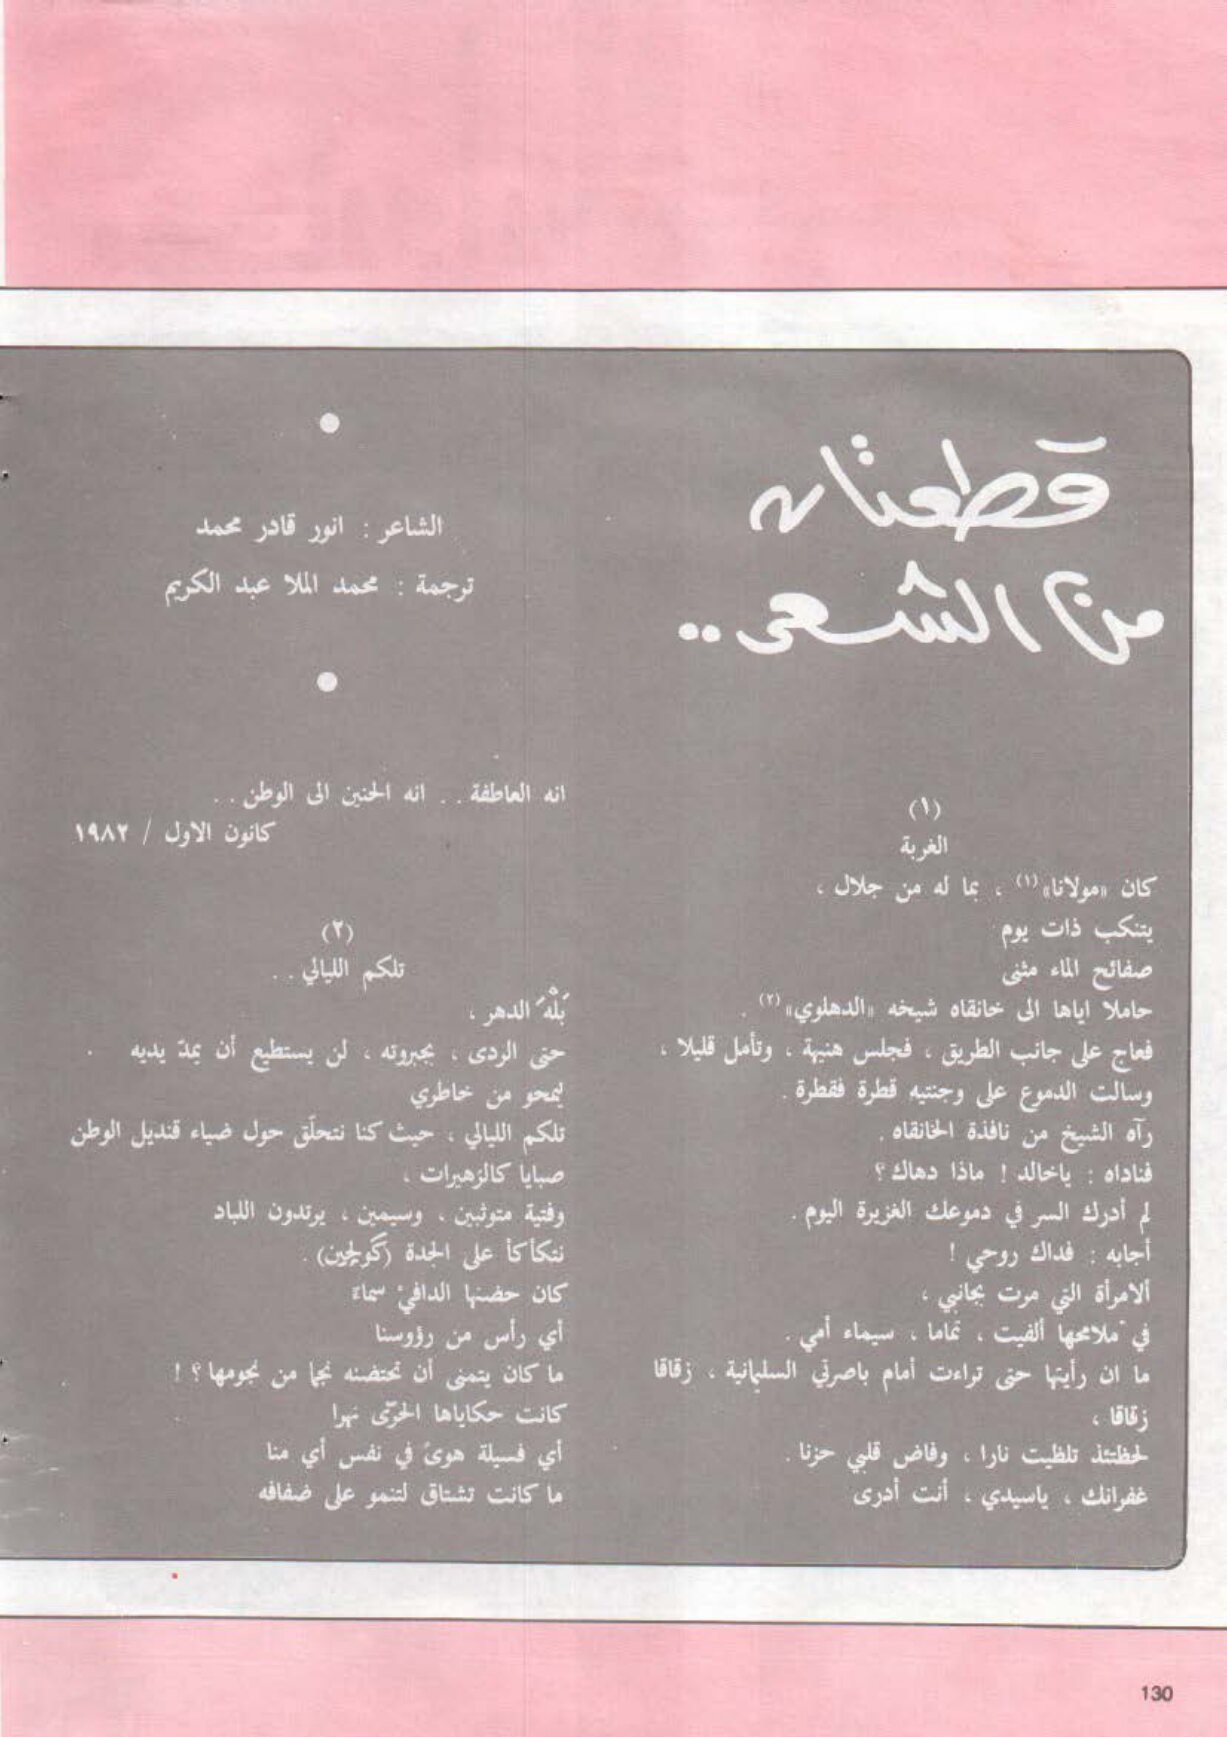 قطعتان
من الشعر ..
الشاعر : انور قادر محمد
ترجمة : محمد الملا عبد الكريم
(١)
الغربة
كان «مولانا»(١) ، بما له من جلال ،
يتنكب ذات يوم
صفائح الماء مثنى
حاملا اياها الى خانقاه شيخه «الدهلوي»(٢) .
فعاج على جانب الطريق ، فجلس هنيهة ، وتأمل قليلا ،
وسالت الدموع على وجنتيه قطرة فقطرة .
رآه الشيخ من نافذة الخانقاه .
فناداه : ياخالد ! ماذا دهاك ؟
لم أدرك السر في دموعك الغزيرة اليوم .
أجابه : فداك روحي !
ألامرأة التي مرت بجانبي ،
في ملامحها ألفيت ، تماما ، سيماء أمي .
ما ان رأيتها حتى تراءت أمام باصرتي السليمانية ، زقاقا
زقاقا ،
لحظتئذ تلظيت نارا ، وفاض قلبي حزنا .
غفرانك ، ياسيدي ، أنت أدرى
انه العاطفة . . انه الحنين الى الوطن . .
كانون الاول / ١٩٨٢
(٢)
تلكم الليالي . .
بَلْهَ الدهر ،
حتى الردى ، بجبروته ، لن يستطيع أن يمدّ يديه
ليمحو من خاطري
تلكم الليالي ، حيث كنا نتحلّق حول ضياء قنديل الوطن
صبايا كالزهيرات ،
وفتية متوثبين ، وسيمين ، يرتدون اللباد
نتكأكأ على الجدة (گولچين) .
كان حضنها الدافئ سماءً
أي رأس من رؤوسنا
ما كان يتمنى أن تحتضنه نجما من نجومها ؟ !
كانت حكاياها الحرّى نهرا
أي فسيلة هوىً في نفس أي منا
ما كانت تشتاق لتنمو على ضفافه
130